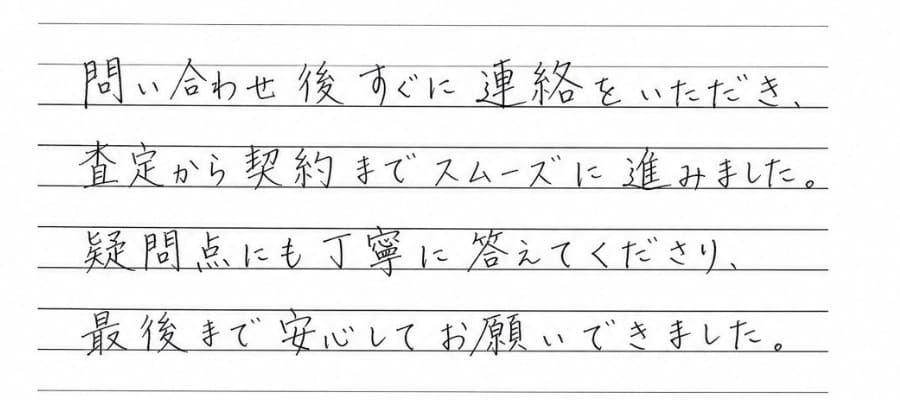 問い合わせ後すぐに連絡をいただき、
査定から契約までスムーズに進みました。
疑問点にも丁寧に答えてくださり、
最後まで安心してお願いできました。